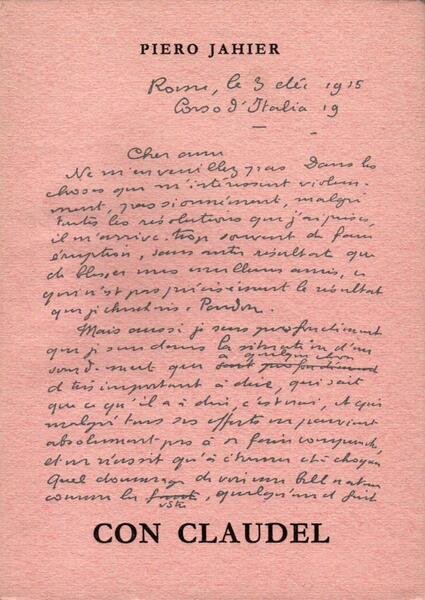 PIERO JAHIER
Rome, le 3 déc 1915
Corso d'Italia 19
Cher ami
Ne m'en veuillez pas Dans les
choses qui m'intéressent violem-
ment, passionnément, malgré
toutes les résolutions que j'ai prises,
il m'arrive trop souvent de faire
éruption, sans autre résultat que
de blesser mes meilleurs amis, ce
qui n'est pas précisément le résultat
que je cherchais. Pardon.
Mais aussi je sens profondément
que je suis dans la situation d'un
sourd-muet qui sent profondément
a quelque chose
d'très important à dire, qui sait
que ce qu'il a à dire, c'est vrai, et qui
malgré tous ses efforts ne parvient
absolument pas à se faire comprendre
et ne réussit qu'à étonner et à choquer
Quel dommage de voir une belle nature
comme la
vôtre
quelqu'un d
CON CLAUDEL